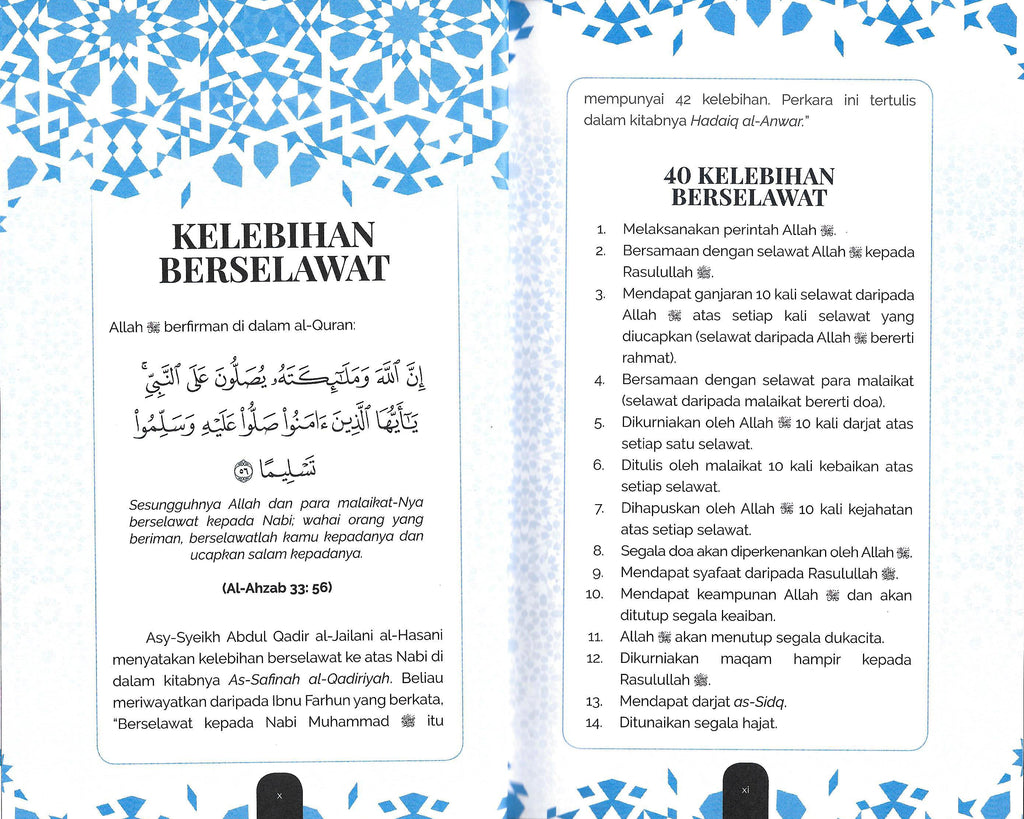 KELEBIHAN
BERSELAWAT
Allah ﷻ berfirman di dalam al-Quran:
إِنَّ ٱللَّهَ وَمَلَـٰٓئِكَتَهُۥ يُصَلُّونَ عَلَى ٱلنَّبِىِّ ۚ
يَـٰٓأَيُّهَا ٱلَّذِينَ ءَامَنُوا۟ صَلُّوا۟ عَلَيْهِ وَسَلِّمُوا۟
تَسْلِيمًا ۝٥٦
Sesungguhnya Allah dan para malaikat-Nya
berselawat kepada Nabi; wahai orang yang
beriman, berselawatlah kamu kepadanya dan
ucapkan salam kepadanya.
(Al-Ahzab 33: 56)
Asy-Syeikh Abdul Qadir al-Jailani al-Hasani
menyatakan kelebihan berselawat ke atas Nabi di
dalam kitabnya As-Safinah al-Qadiriyah. Beliau
meriwayatkan daripada Ibnu Farhun yang berkata,
“Berselawat kepada Nabi Muhammad ﷺ itu
x
mempunyai 42 kelebihan. Perkara ini tertulis
dalam kitabnya Hadaiq al-Anwar.”
40 KELEBIHAN
BERSELAWAT
1. Melaksanakan perintah Allah ﷻ.
2. Bersamaan dengan selawat Allah ﷻ kepada
Rasulullah ﷺ.
3. Mendapat ganjaran 10 kali selawat daripada
Allah ﷻ atas setiap kali selawat yang
diucapkan (selawat daripada Allah ﷻ bererti
rahmat).
4. Bersamaan dengan selawat para malaikat
(selawat daripada malaikat bererti doa).
5. Dikurniakan oleh Allah ﷻ 10 kali darjat atas
setiap satu selawat.
6. Ditulis oleh malaikat 10 kali kebaikan atas
setiap selawat.
7. Dihapuskan oleh Allah ﷻ 10 kali kejahatan
atas setiap selawat.
8. Segala doa akan diperkenankan oleh Allah ﷻ.
9. Mendapat syafaat daripada Rasulullah ﷺ.
10. Mendapat keampunan Allah ﷻ dan akan
ditutup segala keaiban.
11. Allah ﷻ akan menutup segala dukacita.
12. Dikurniakan maqam hampir kepada
Rasulullah ﷺ.
13. Mendapat darjat as-Sidq.
14. Ditunaikan segala hajat.
xi